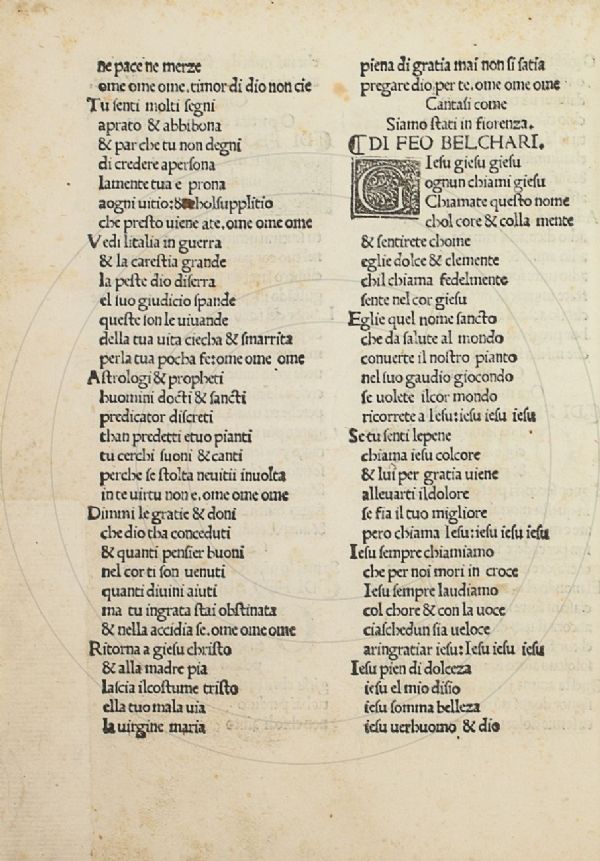 ne pace ne merze
ome ome ome. timor di dio non cie
Tu senti molti segni
aprato & abbibona
& par che tu non degni
di credere apersona
lamente tua e prona
aogni uitio: & holsupplitio
che presto uiene ate. ome ome ome
Vedi litalia in guerra
& la carestia grande
la peste dio diserra
el suo giudicio spande
queste son le uiuande
della tua uita ciecha & smarrita
perla tua pocha fe: ome ome ome
Astrologi & propheti
huomini docti & sancti
predicator discreti
than predetti etuo pianti
tu cerchi suoni & canti
perche se stolta neuitii inuolta
in te uirtu non e. ome ome ome
Dimmi le gratie & doni
che dio tha conceduti
& quanti pensier buoni
nel cor ti son uenuti
quanti diuini aiuti
ma tu ingrata stai obstinata
& nella accidia se. ome ome ome
Ritorna a giesu christo
& alla madre pia
lascia ilcostume tristo
ella tuo mala uia
la uirgine maria
piena di gratia mai non si satia
pregare dio per te. ome ome ome
Cantasi come
Siamo stati in fiorenza.
¶ DI FEO BELCHARI.
GIesu giesu giesu
ognun chiami giesu
Chiamate questo nome
chol core & colla mente
& sentirete chome
eglie dolce & clemente
chil chiama fedelmente
sente nel cor giesu
Eglie quel nome sancto
che da salute al mondo
conuerte il nostro pianto
nel suo gaudio giocondo
se uolete ilcor mondo
ricorrete a Iesu: iesu iesu iesu
Se tu senti lepene
chiama iesu colcore
& lui per gratia uiene
alleuarti ildolore
se fia il tuo migliore
pero chiama Iesu: iesu iesu iesu
Iesu sempre chiamiamo
che per noi mori in croce
Iesu sempre laudiamo
col chore & con la uoce
ciaschedun sia ueloce
aringratiar iesu: Iesu iesu iesu
Iesu pien di dolceza
iesu el mio disio
iesu somma belleza
iesu uerhuomo & dio